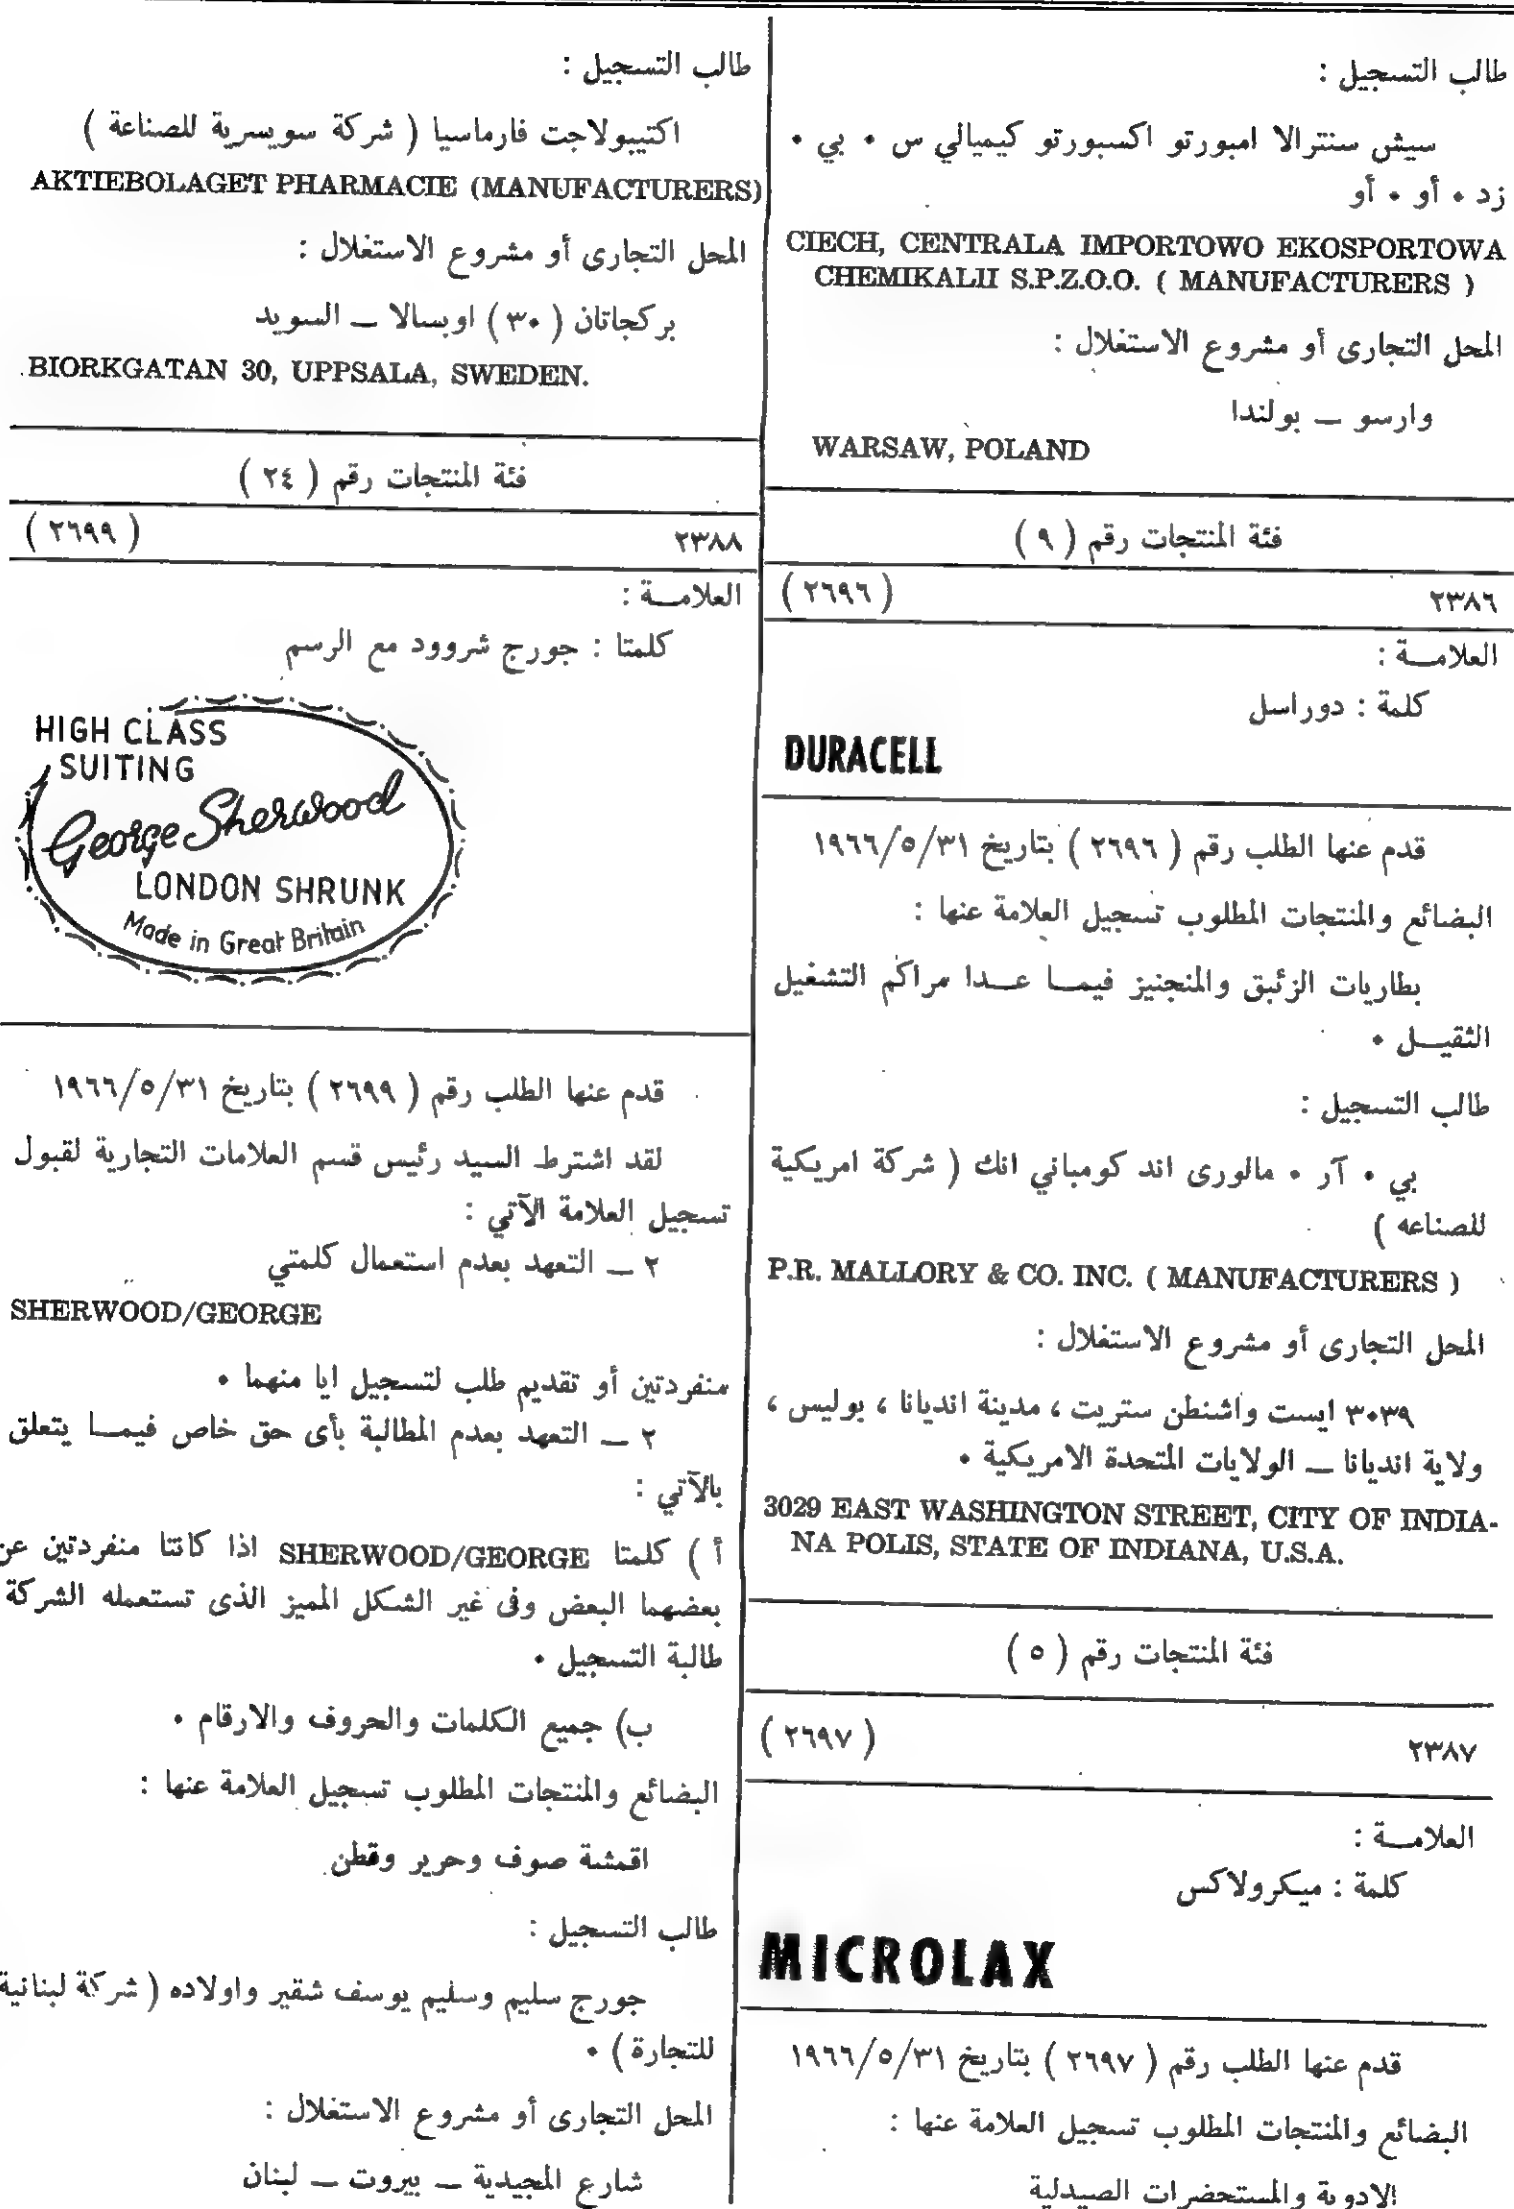 طالب التسجيل :
سيش سنترالا امبورتو اكسبورتو كيميالي س ٠ بي ٠
زد ٠ أو ٠ أو
CIECH, CENTRALA IMPORTOWO EKOSPORTOWA
CHEMIKALII S.P.Z.O.O. ( MANUFACTURERS )
المحل التجارى أو مشروع الاستغلال :
وارسو — بولندا
WARSAW, POLAND
فئة المنتجات رقم ( ٩ )
٢٣٨٦ ( ٢٦٩٦ )
العلامـــة :
كلمة : دوراسل
DURACELL
قدم عنها الطلب رقم ( ٢٦٩٦ ) بتاريخ ١٩٦٦/٥/٣١
البضائع والمنتجات المطلوب تسجيل العلامة عنها :
بطاريات الزئبق والمنجنيز فيمـــا عـــدا مراكم التشغيل
الثقيـــل ٠
طالب التسجيل :
بي ٠ آر ٠ مالورى اند كومباني انك ( شركة امريكية
للصناعه )
P.R. MALLORY & CO. INC. ( MANUFACTURERS )
المحل التجارى أو مشروع الاستغلال :
٣٠٣٩ ايست واشنطن ستريت ، مدينة انديانا ، بوليس ،
ولاية انديانا — الولايات المتحدة الامريكية ٠
3029 EAST WASHINGTON STREET, CITY OF INDIA-
NA POLIS, STATE OF INDIANA, U.S.A.
فئة المنتجات رقم ( ٥ )
٢٣٨٧ ( ٢٦٩٧ )
العلامـــة :
كلمة : ميكرولاكس
MICROLAX
قدم عنها الطلب رقم ( ٢٦٩٧ ) بتاريخ ١٩٦٦/٥/٣١
البضائع والمنتجات المطلوب تسجيل العلامة عنها :
الادوية والمستحضرات الصيدلية
طالب التسجيل :
اكتيبولاجت فارماسيا ( شركة سويسرية للصناعة )
AKTIEBOLAGET PHARMACIE (MANUFACTURERS)
المحل التجارى أو مشروع الاستغلال :
بركجاتان ( ٣٠ ) اوبسالا — السويد
BIORKGATAN 30, UPPSALA, SWEDEN.
فئة المنتجات رقم ( ٢٤ )
٢٣٨٨ ( ٢٦٩٩ )
العلامـــة :
كلمتا : جورج شروود مع الرسم
HIGH CLASS
SUITING
George Sherwood
LONDON SHRUNK
Made in Great Britain
قدم عنها الطلب رقم ( ٢٦٩٩ ) بتاريخ ١٩٦٦/٥/٣١
لقد اشترط السيد رئيس قسم العلامات التجارية لقبول
تسجيل العلامة الآتي :
٢ — التعهد بعدم استعمال كلمتي
SHERWOOD/GEORGE
منفردتين أو تقديم طلب لتسجيل ايا منهما ٠
٢ — التعهد بعدم المطالبة بأى حق خاص فيمـــا يتعلق
بالآتي :
أ ) كلمتا SHERWOOD/GEORGE اذا كانتا منفردتين عن
بعضهما البعض وفى غير الشكل المميز الذى تستعمله الشركة
طالبة التسجيل ٠
ب) جميع الكلمات والحروف والارقام ٠
البضائع والمنتجات المطلوب تسجيل العلامة عنها :
اقمشة صوف وحرير وقطن
طالب التسجيل :
جورج سليم وسليم يوسف شقير واولاده ( شركة لبنانية
للتجارة ) ٠
المحل التجارى أو مشروع الاستغلال :
شارع المجيدية — بيروت — لبنان